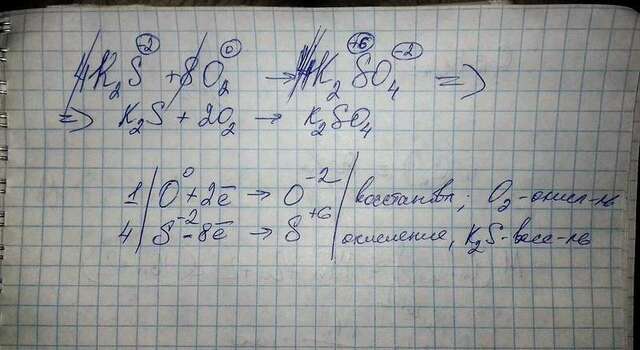 4K₂S⁻² + 8O₂⁰ → 4K₂S⁺⁶O₄⁻² =>
=> K₂S + 2O₂ → K₂SO₄
1 | O⁰ + 2ē → O⁻² | восстановл; O₂ - окисл-ль
4 | S⁻² - 8ē → S⁺⁶ | окисление, K₂S - восс-ль